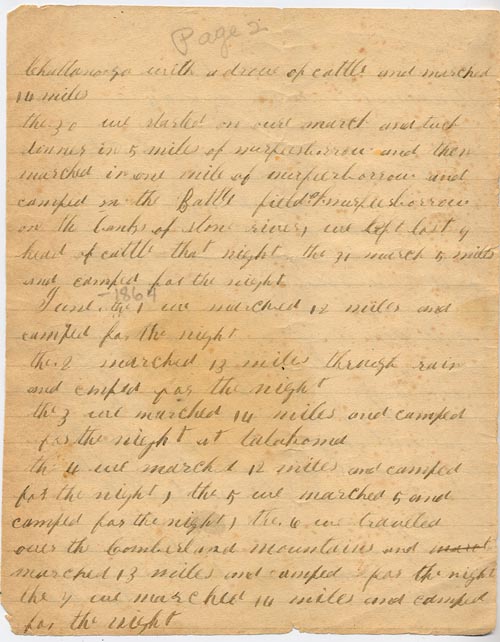 Page 2
Chattanooga with a drove of cattle and marched
14 miles
the 30 we started on oure march and tuck
dinner in 5 miles of murfeesborrow and then
marched in one mile of murfeesborrow and
camped in the Battle field of murfeesborrow
on the banks of stone river, we left lost 9
head of cattle that night the 31 march 5 miles
and camped for the night
June the 1 we marched 12 miles and
-1864
campd for the night
the 2 marched 13 miles through rain
and cmped for the night
the 3 we marched 14 miles and camped
for the night at talahoma
th 4 we marched 12 miles and camped
for the night, the 5 we marched 5 and
camped for the night, the 6 we traveled
over th Comberland mountains and
marched 13 miles and camped for the night
the 7 we marched 14 miles and camped
for the night